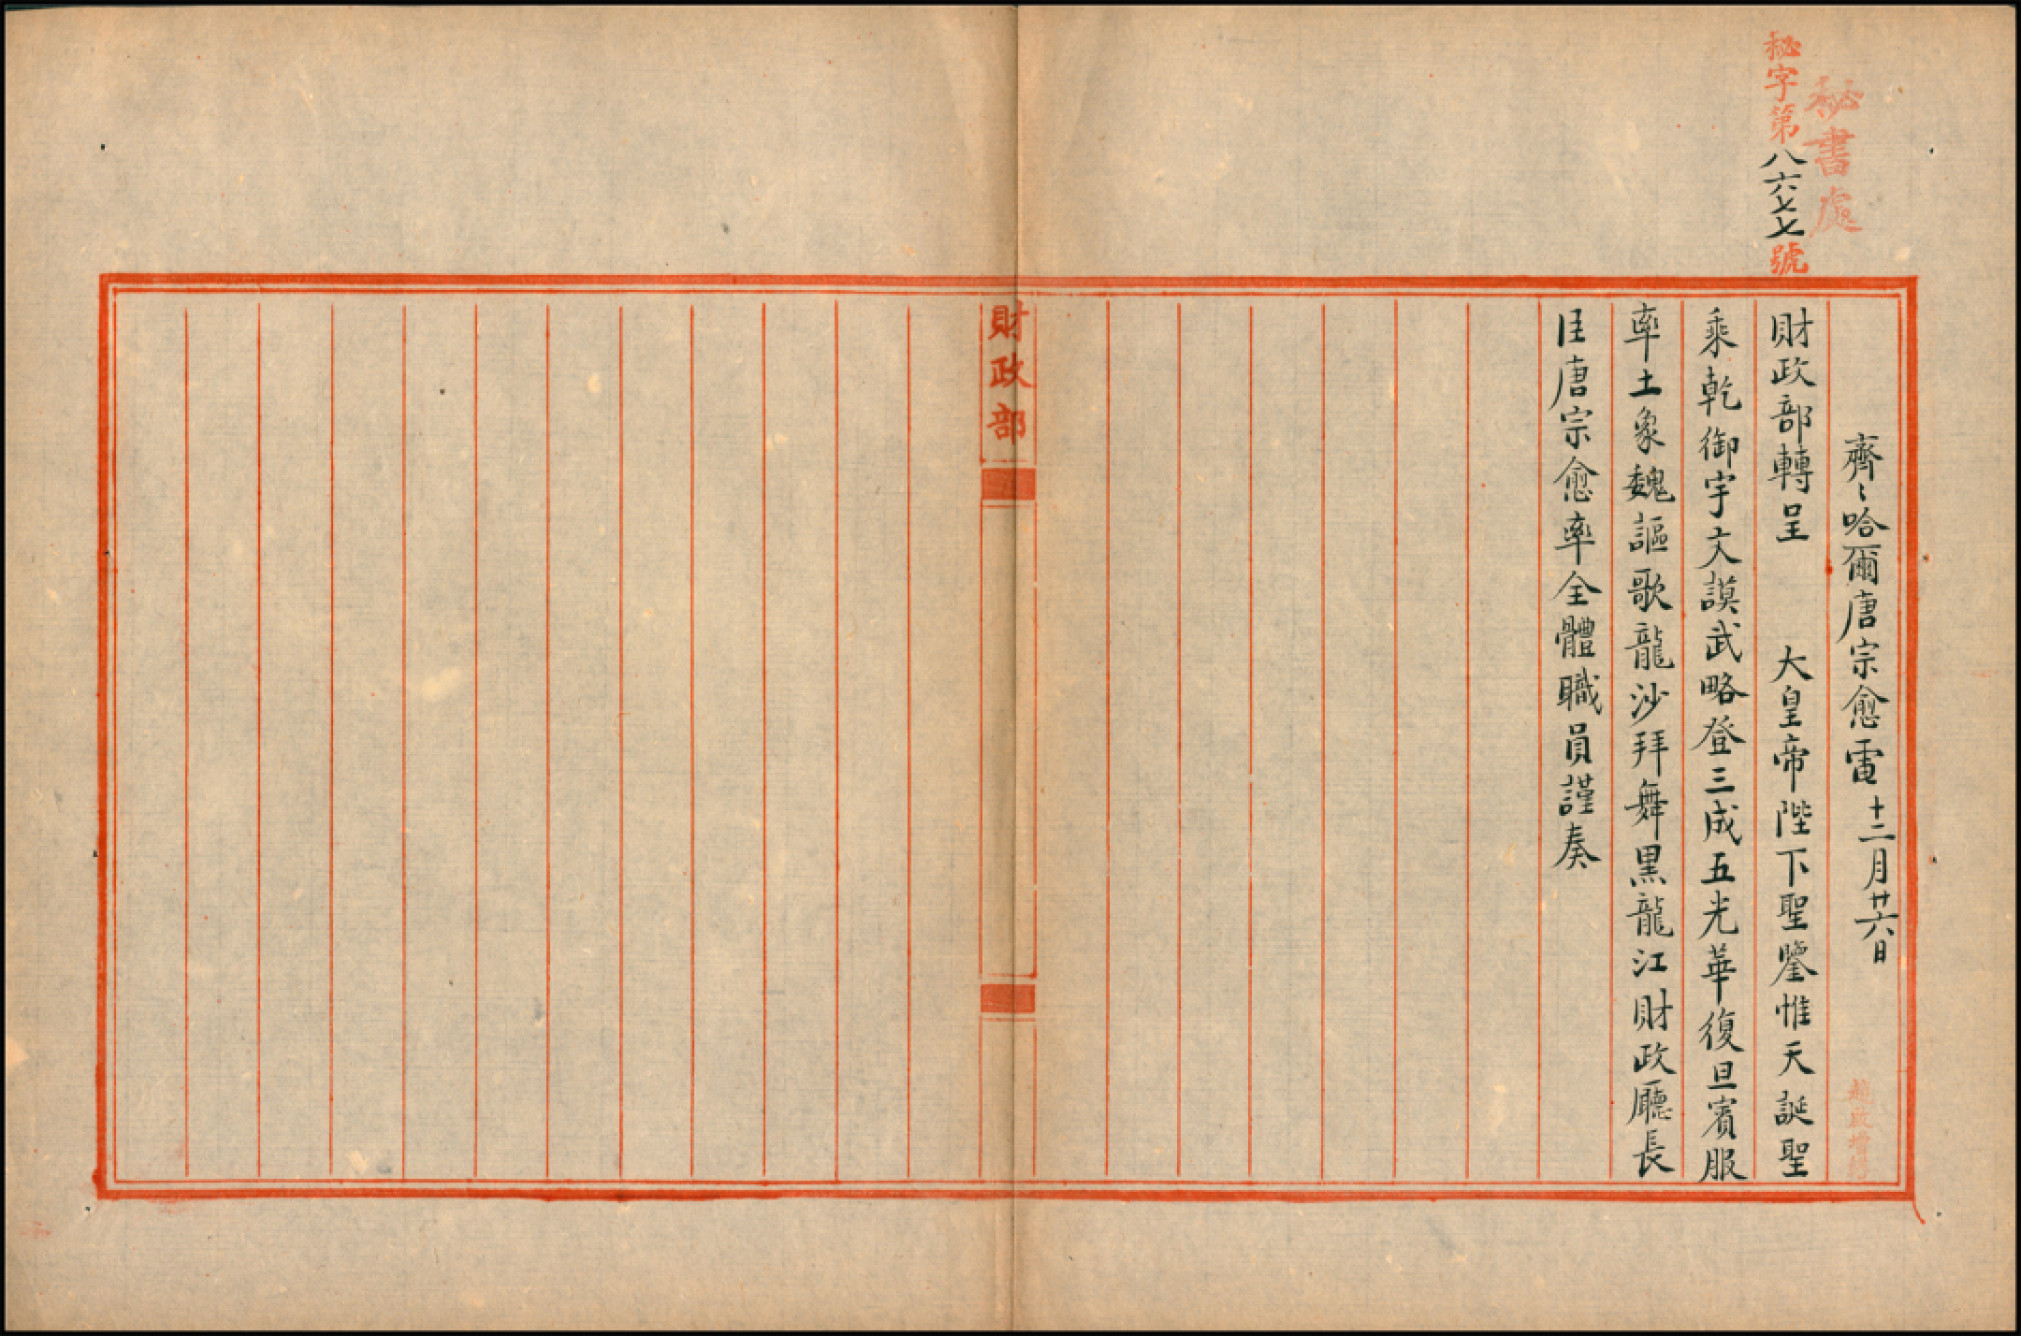 秘書處
秘字第八六七七號
齊〻哈爾唐宗愈電十二月廿六日
財政部轉呈 大皇帝陛下聖鑒惟天誕聖
乘乾御宇文謨武略登三咸五光華復旦賓服
率土象魏謳歌龍沙拜舞黑龍江財政廳長
臣唐宗愈率全體職員謹奏
財政部